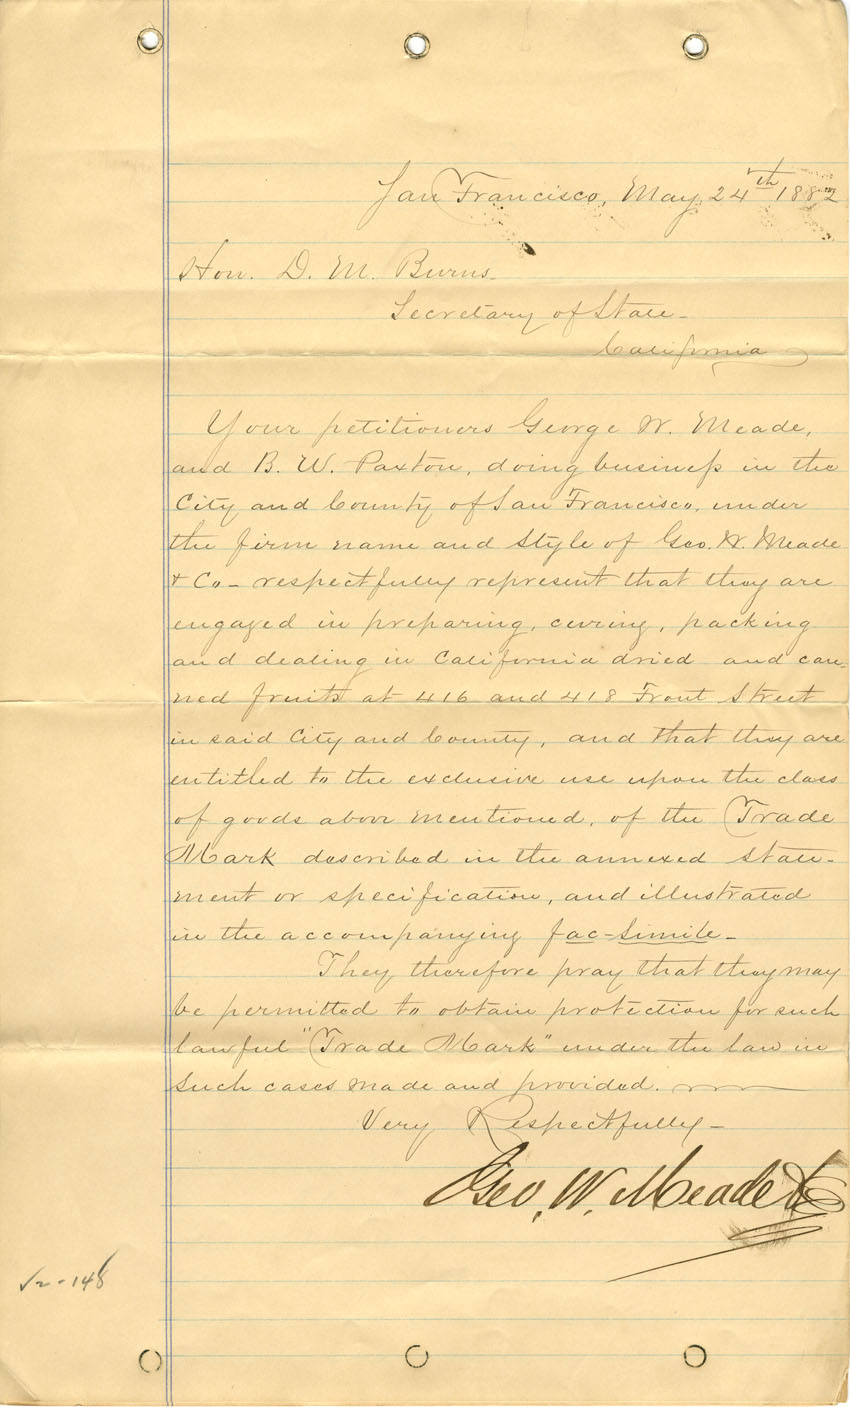 San Francisco, May 24th 1882
Hon. D. M. Burns.
Secretary of State-
California
Your petitioners George W. Meade,
and B. W. Paxton, doing business in the
City and County of San Francisco, under
the firm name and style of Geo. W. Meade
+ Co- respectfully represent that they are
engaged in preparing, curing, packing
and dealing in California dried and can-
ned fruits at 416 and 418 Front Street
in said City and County, and that they are
entitled to the exclusive use upon the class
of goods above mentioned, of the Trade
Mark described in the annexed state-
ment or specification, and illustrated
in the accompanying fac-simile-
They therefore pray that they may
be permitted to obtain protection for such
lawful "Trade Mark" under the law in
such cases made and provided.
Very Respectfully-
Geo. W. Meade & Co